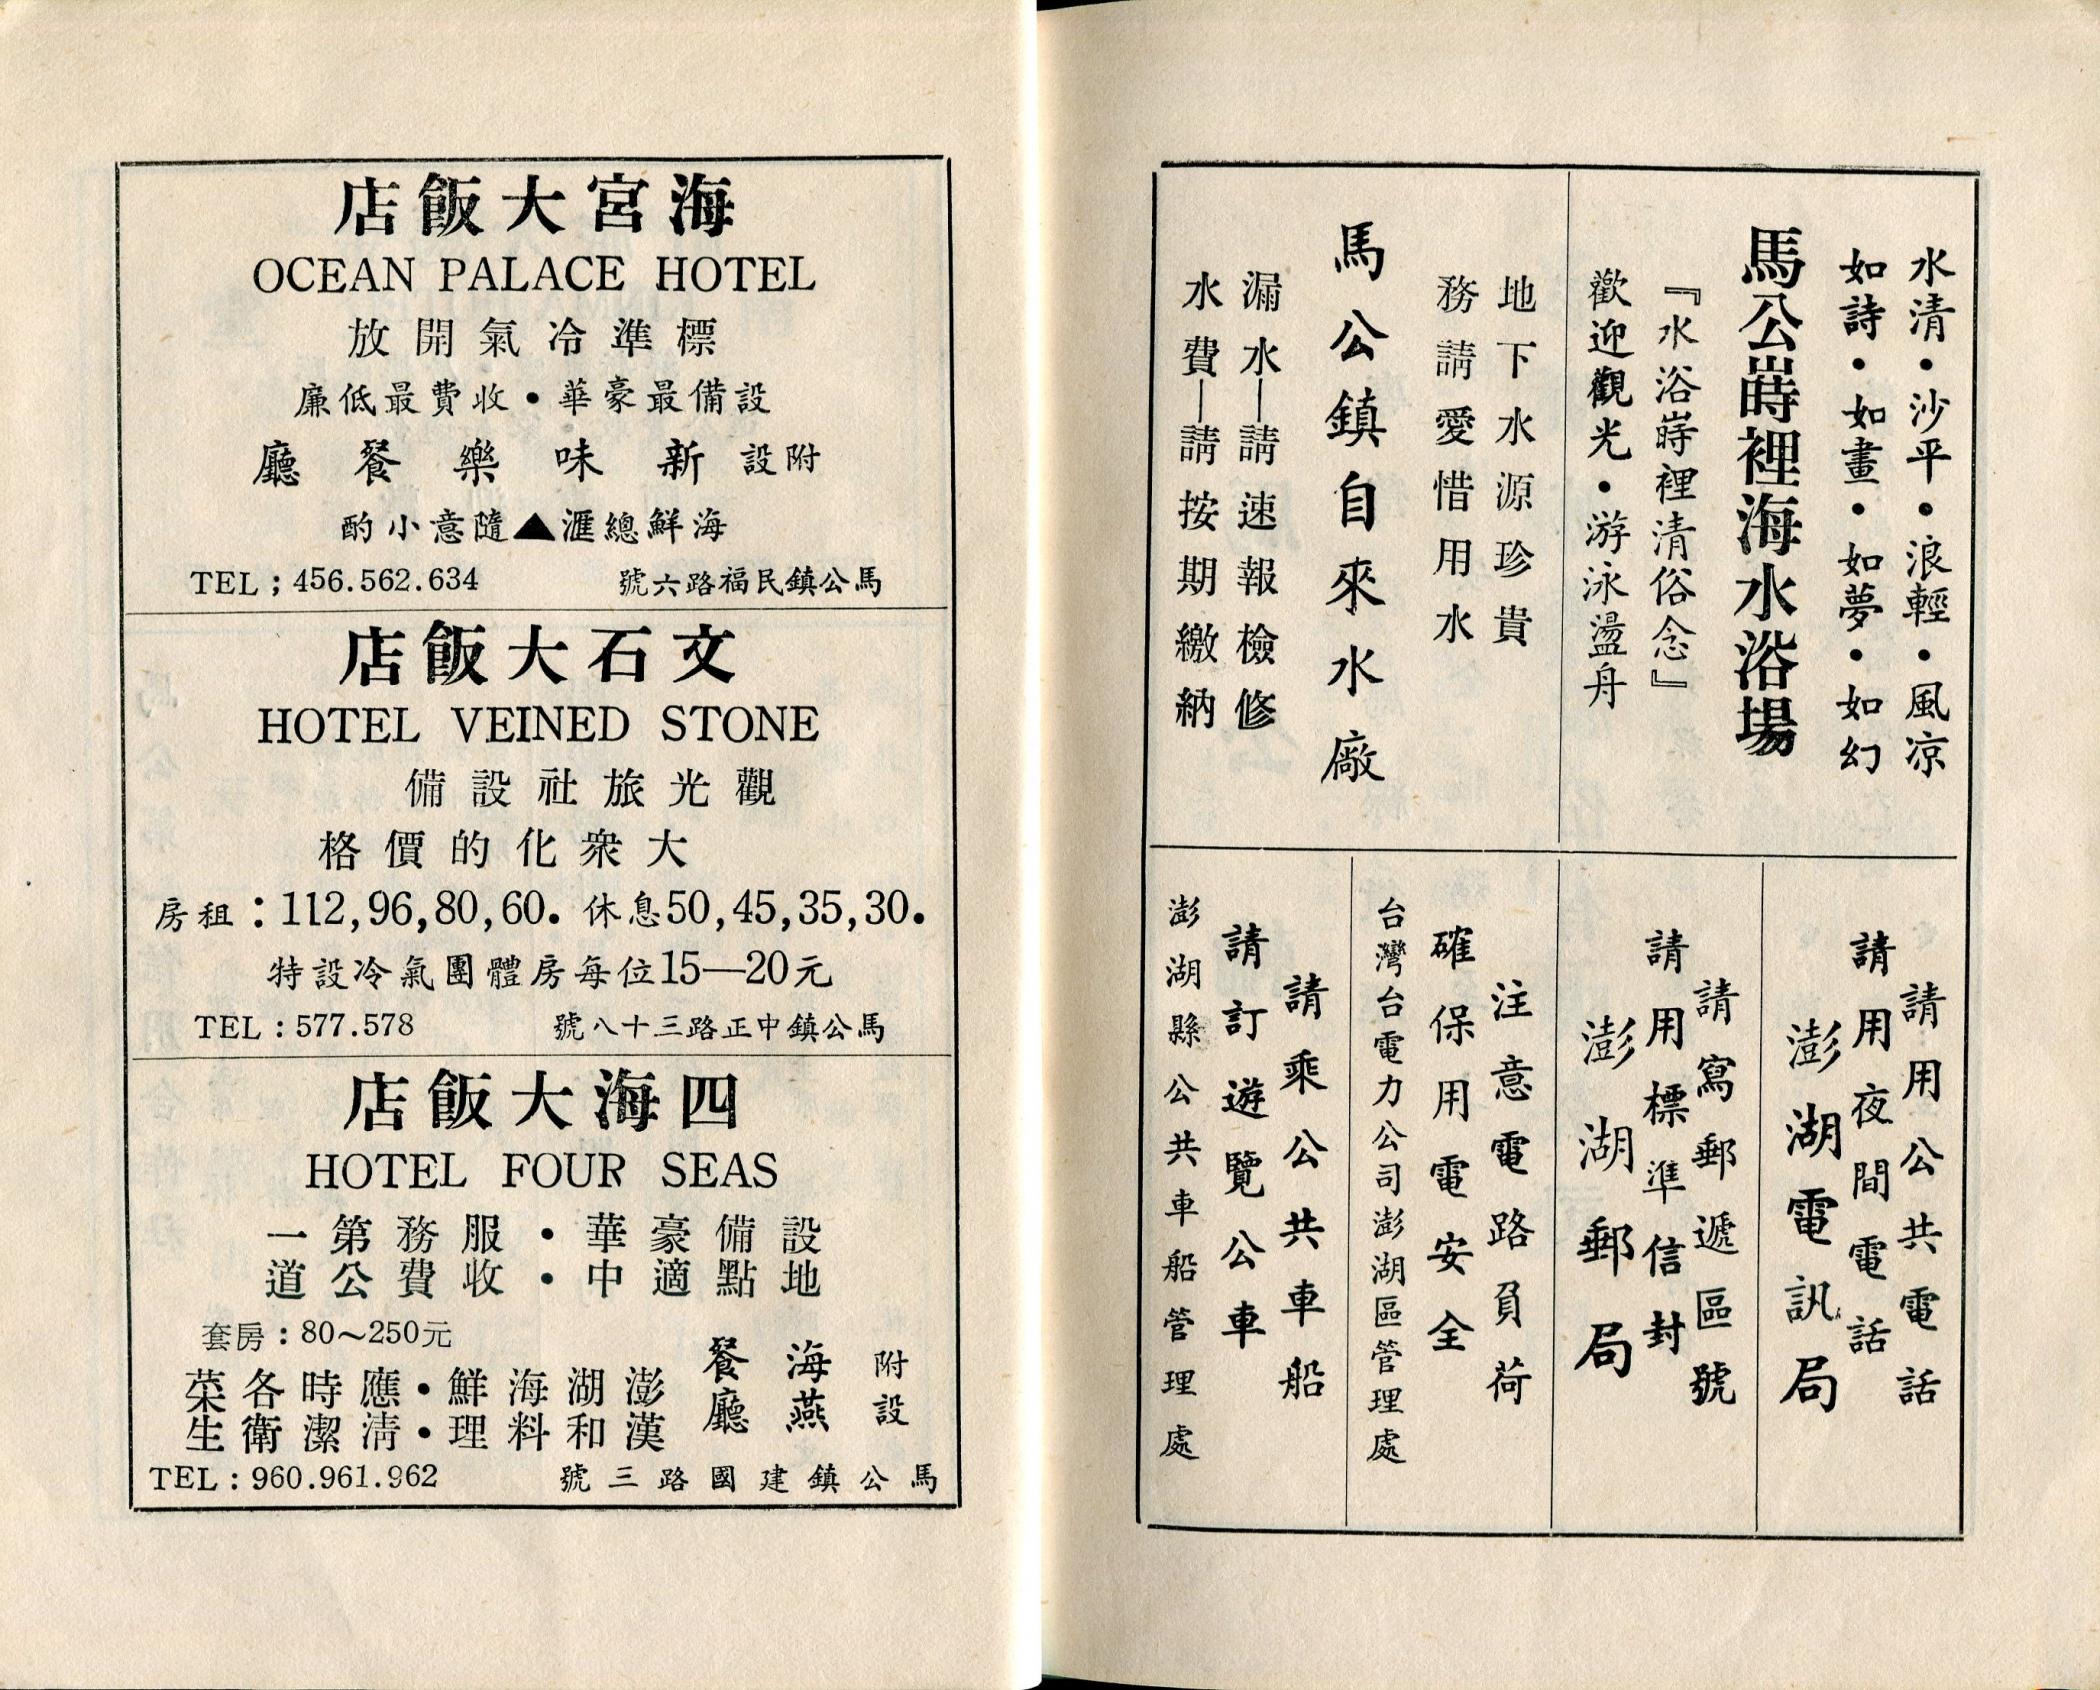 水清・沙平・浪輕・風凉
如詩・如畫・如夢・如幻
馬公嵵裡海水浴場
『水浴嵵裡清俗念』
歡迎觀光・游泳盪舟
地下水源珍貴
務請愛惜用水
馬公鎮自來水廠
漏水—請速報檢修
水費—請按期繳納
請用公共電話
請用夜間電話
澎湖電訊局
請寫郵遞區號
請用標準信封
澎湖郵局
注意電路負荷
確保用電安全
台灣台電力公司澎湖區管理處
請乘公共車船
請訂遊覽公車
澎湖縣公共車船管理處
海宮大飯店
OCEAN PALACE HOTEL
標準冷氣開放
設備最豪華・收費最低廉
附設 新味樂餐廳
海鮮總滙▲隨意小酌
馬公鎮民福路六號
TEL；456.562.634
文石大飯店
HOTEL VEINED STONE
觀光旅社設備
大衆化的價格
房租：112,96,80,60. 休息50,45,35,30.
特設冷氣團體房每位15—20元
馬公鎮中正路三十八號
TEL：577.578
四海大飯店
HOTEL FOUR SEAS
設備豪華・服務第一
地點適中・收費公道
套房：80～250元
附設 海燕餐廳
澎湖海鮮・應時各菜
漢和料理・清潔衛生
馬公鎮建國路三號
TEL：960.961.962